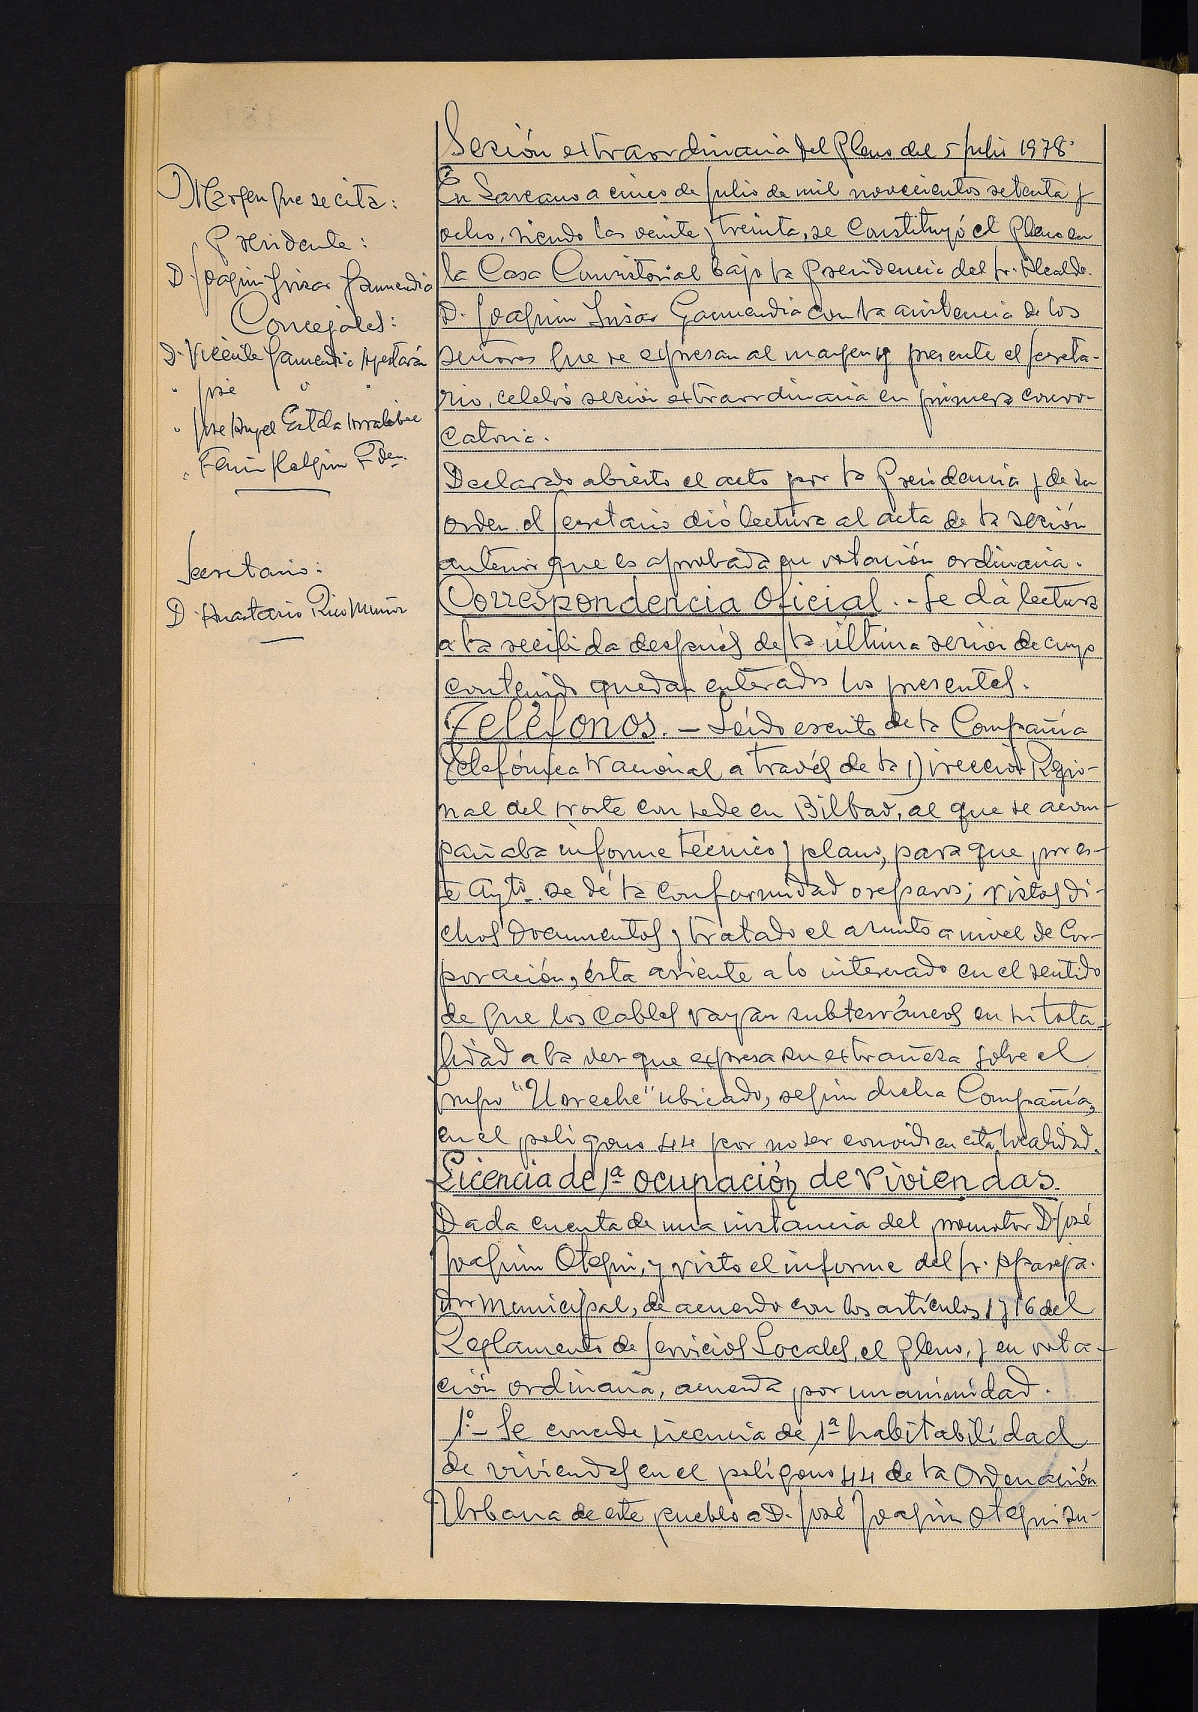 Sesión extraordinaria del Pleno del 5 julio 1978.
Margen que se cita:
Presidente:
D. Joaquin Insar Garmendia
Concejales:
D. Vicente Garmendia Apestarán
" José " "
" José Angel
" Fermín
Secretario:
D. Anastasio Rico Muñoz
En a cinco de julio de mil novecientos setenta y
ocho, siendo las veinte y treinta, se constituyó el Pleno en
la Casa Consistorial bajo la Presidencia del Sr. Alcalde
D. Joaquin Insar Garmendia con la asistencia de los
señores que se expresan al margen y presente el secreta-
rio, celebró sesión extraordinaria en primera convo-
catoria.
Declarado abierto el acto por la Presidencia y de su
orden el secretario dió lectura al acta de la sesión
anterior que es aprobada en votación ordinaria.
Correspondencia Oficial. - Se dá lectura
a la recibida después de la última sesión de cuyo
contenido quedan enterados los presentes.
Teléfonos. - Leído escrito de la Compañía
Telefónica Nacional a través de la Dirección Regio-
nal del Norte con sede en Bilbao, al que se acom-
pañaba informe técnico y plano, para que por es-
te Aytº. se dé la conformidad o reparos; vistos di-
chos documentos y tratado el asunto a nivel de Cor-
poración, ésta asiente a lo interesado en el sentido
de que los cables vayan subterráneos en su tota-
lidad a la vez que expresa su extrañeza sobre el
grupo "Urreche" ubicado, según dicha Compañía,
en el polígono 44 por no ser conocido en esta localidad.
Licencia de 1ª ocupación de viviendas.
Dada cuenta de una instancia del promotor D. José
Joaquin Otegui, y visto el informe del Sr. Apareja-
dor Municipal, de acuerdo con los artículos 1 y 16 del
Reglamento de Servicios Locales, el Pleno, y en vota-
ción ordinaria, acuerda por unanimidad.
1º.- Se concede licencia de 1ª habitabilidad
de viviendas en el polígono 44 de la Ordenación
Urbana de este pueblo a D. José Joaquin Otegui su-